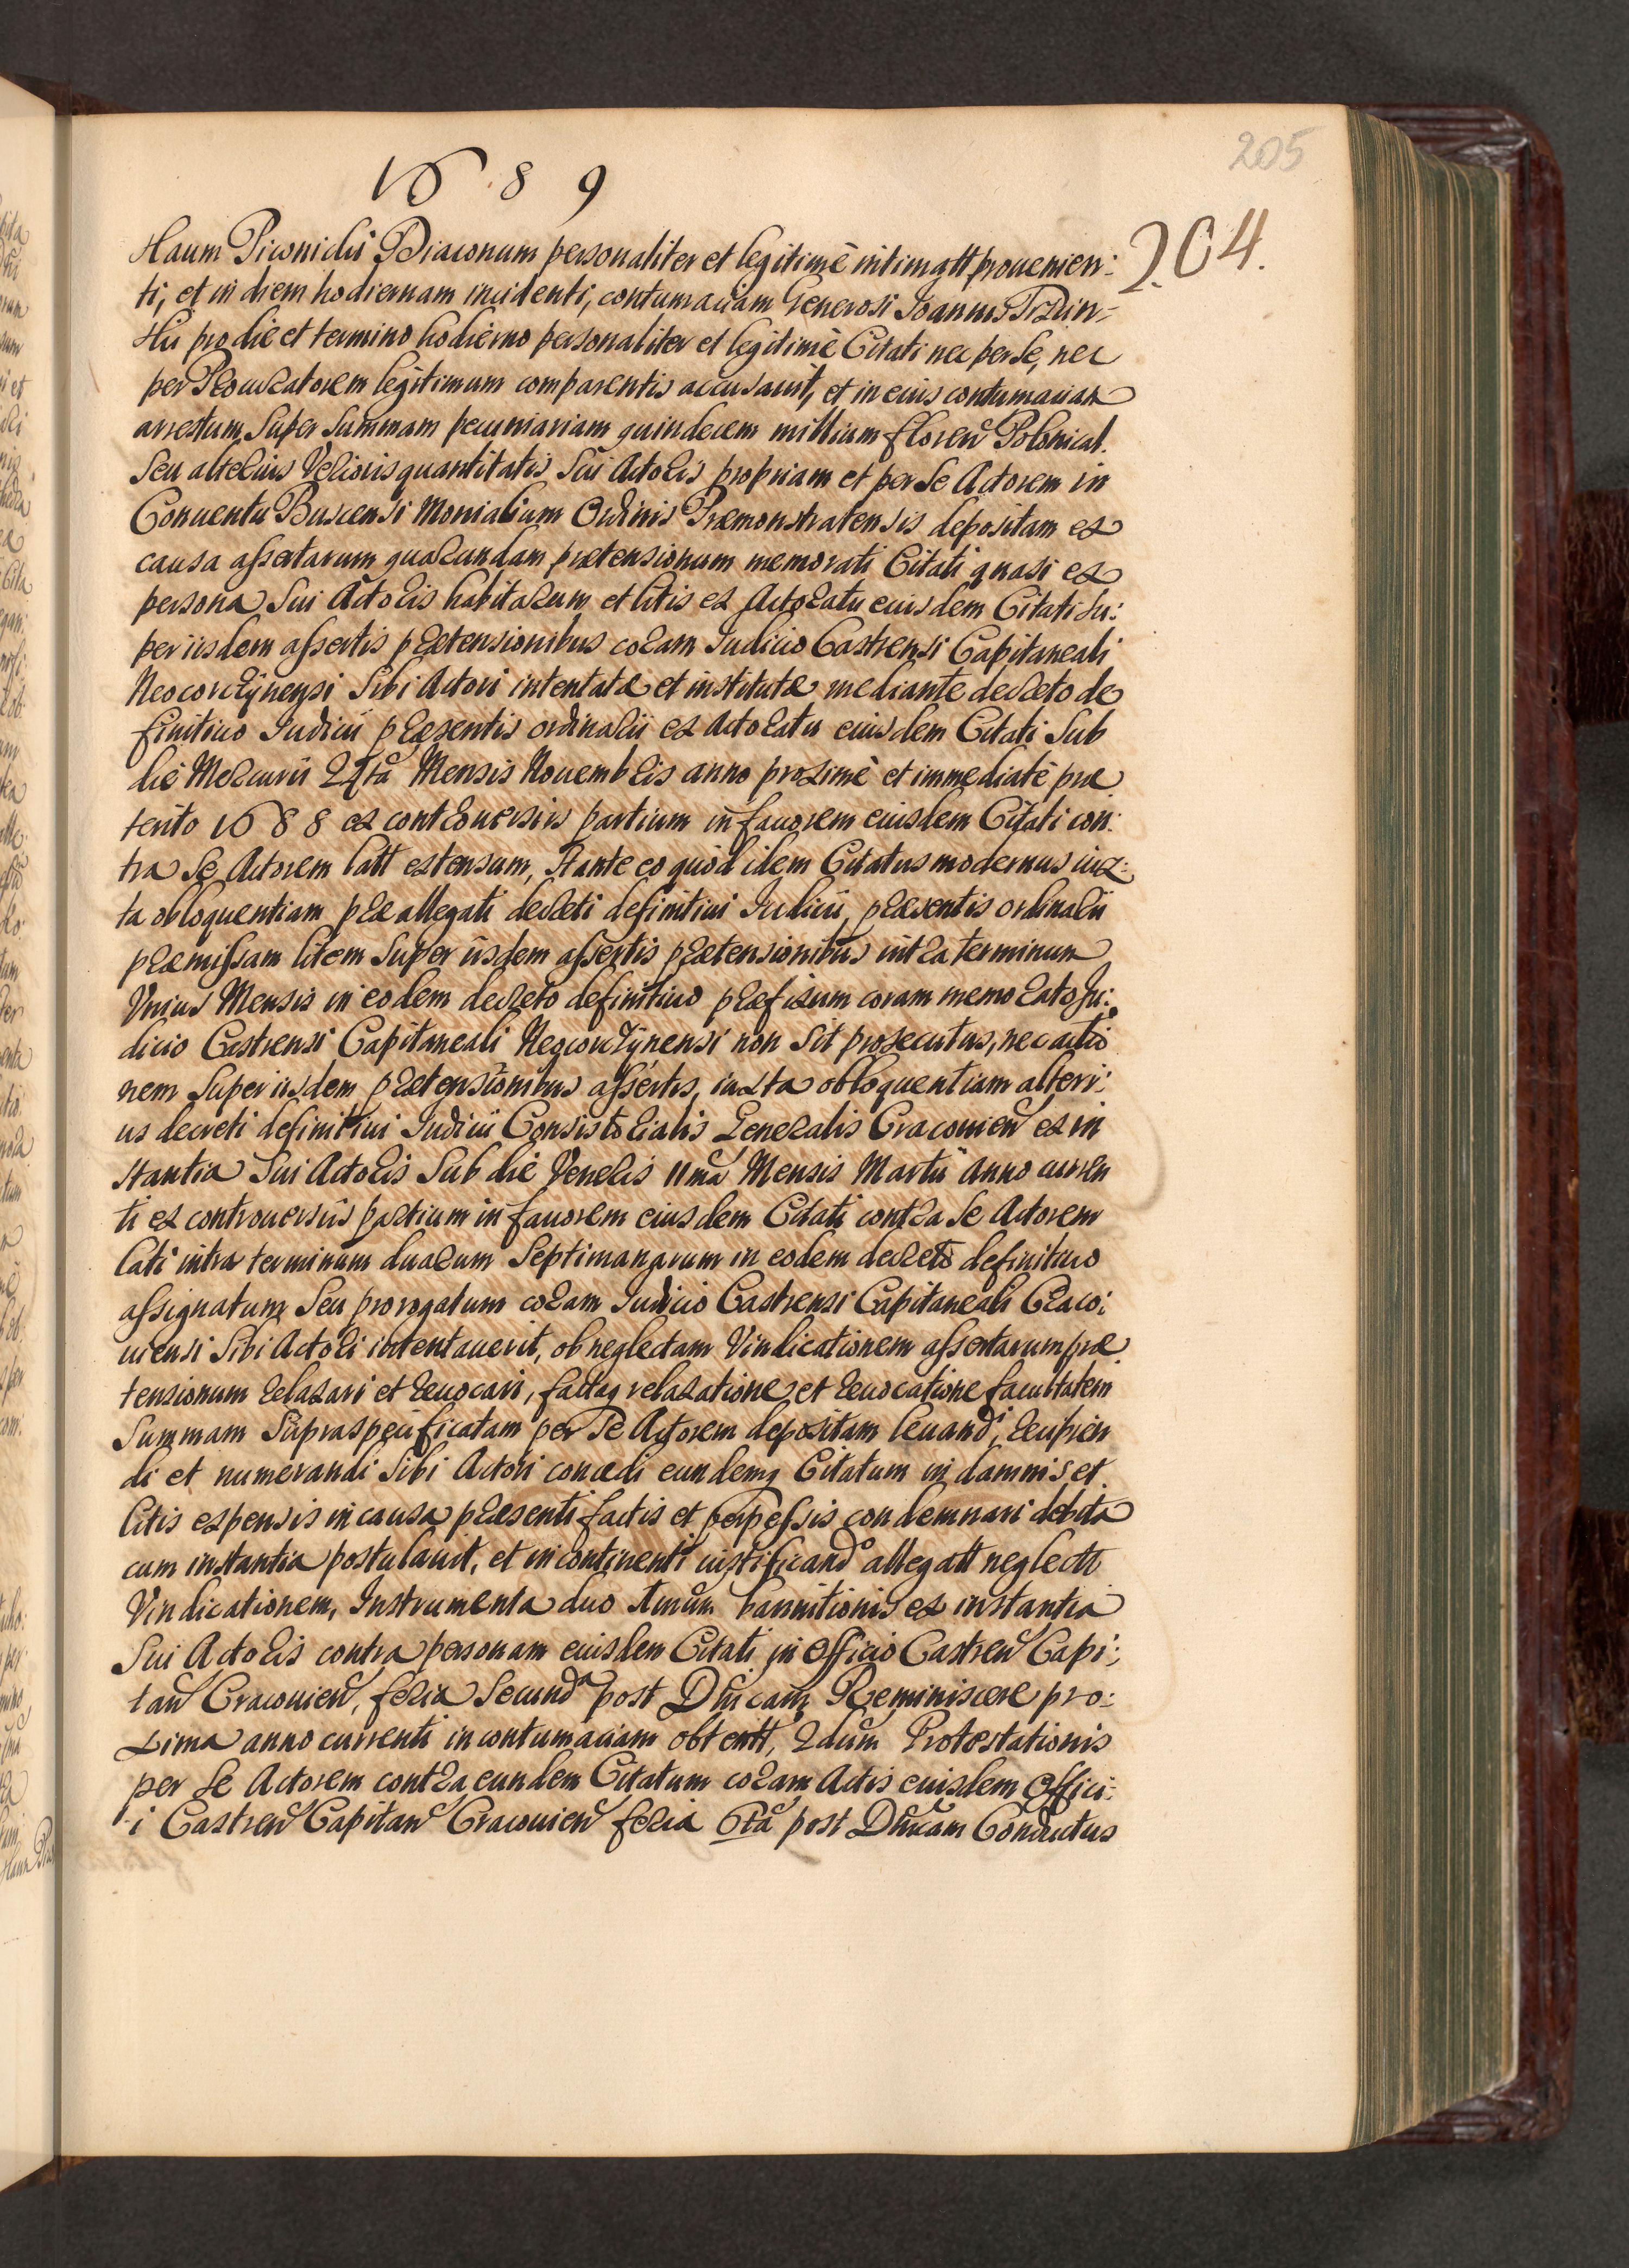 205
1689
204.
slaum Piconidii Diaconum personaliter et legitimè intimatt prouenien:
ti, et in diem hodiernam incidenti, contumaciam Generosi Joannis
slii pro die et termino hodierno personaliter et legitimè Citati nec per se, nec
per Procuratorem legitimum comparentis accusauit, et in eius contumaciam
arrestum Super Summam pecuniariam quindecem millium floren Polonical.
Seu alterius Verioris quantitatis Sui Actoris propriam et per Se Actorem in
Conuentu Buscensi Monialium Ordinis Præmonstratensis depositam ex
causa assertarum quarundam prætensionum memorati Citati quasi ex
persona Sui Actoris habitarum et litis ex Actoratu eiusdem Citati Su:
per iisdem assertis prætensionibus coram Iudicio Castrensi Capitaneali
Neocorczÿnensi Sibi Actori intentatæ et institutæ mediante decreto de
finitiuo Iudicii præsentis ordinarii ex Actoratu eiusdem Citati Sub
die Mercurii 24ta Mensis Nouembris anno proximè et immediatè præ
terito 1688 ex controuersiis partium in fauorem eiusdem Citati con:
tra Se Actorem latt extensum, Stante eo quòd idem Citatus modernus iux:
ta obloquentiam præallegati decreti definitiui Iudicii, præsentis ordinarii
præmissam litem Super iisdem assertis prætensionibus intra terminum
Vnius Mensis in eodem decreto definitiuo præfixum coram memorato Ju:
dicio Castrensi Capitaneali Neocorczÿnensi non Sit prosecutus, nec actio
nem Super iisdem prætensionibus assertis, iuxta obloquentiam alteri:
us decreti definitiui Iudicii Consistorialis Generalis Cracouien ex in
stantia Sui Actoris Sub die Veneris 11ma Mensis Martii Anno curren
ti ex controuersiis partium in fauorem eiusdem Citati contra Se Actorem
lati intra terminum duarum Septimanarum in eodem decreto definitiuo
assignatum Seu prorogatum coram Iudicio Castrensi Capitaneali Craco:
uiensi Sibi Actori intentauerit, ob neglectam Vindicationem assertarum præ
tensionum relaxari et reuocari, factaq relaxatione et reuocatione facultatem
Summam Supraspecificatam per Se Actorem depositam leuandi, recipien
di et numerandi Sibi Actori concedi eundemq Citatum in damnis et
litis expensis in causa præsenti factis et perpessis condemnari debita
cum instantia postulauit, et in continenti iustificando allegatt neglectt
Vindicationem, Instrumenta duo 1mum bannitionis ex instantia
Sui Actoris contra personam eiusdem Citati in Officio Castren Capi:
tan Cracouien, feria Secunda post Dnicam Reminiscere pro:
xima anno currenti in contumaciam obtentt, 2dum Protestationis
per Se Actorem contra eundem Citatum coram Actis eiusdem Offici:
i Castren Capitan Cracouien feria 6ta post Dnicam Conductus